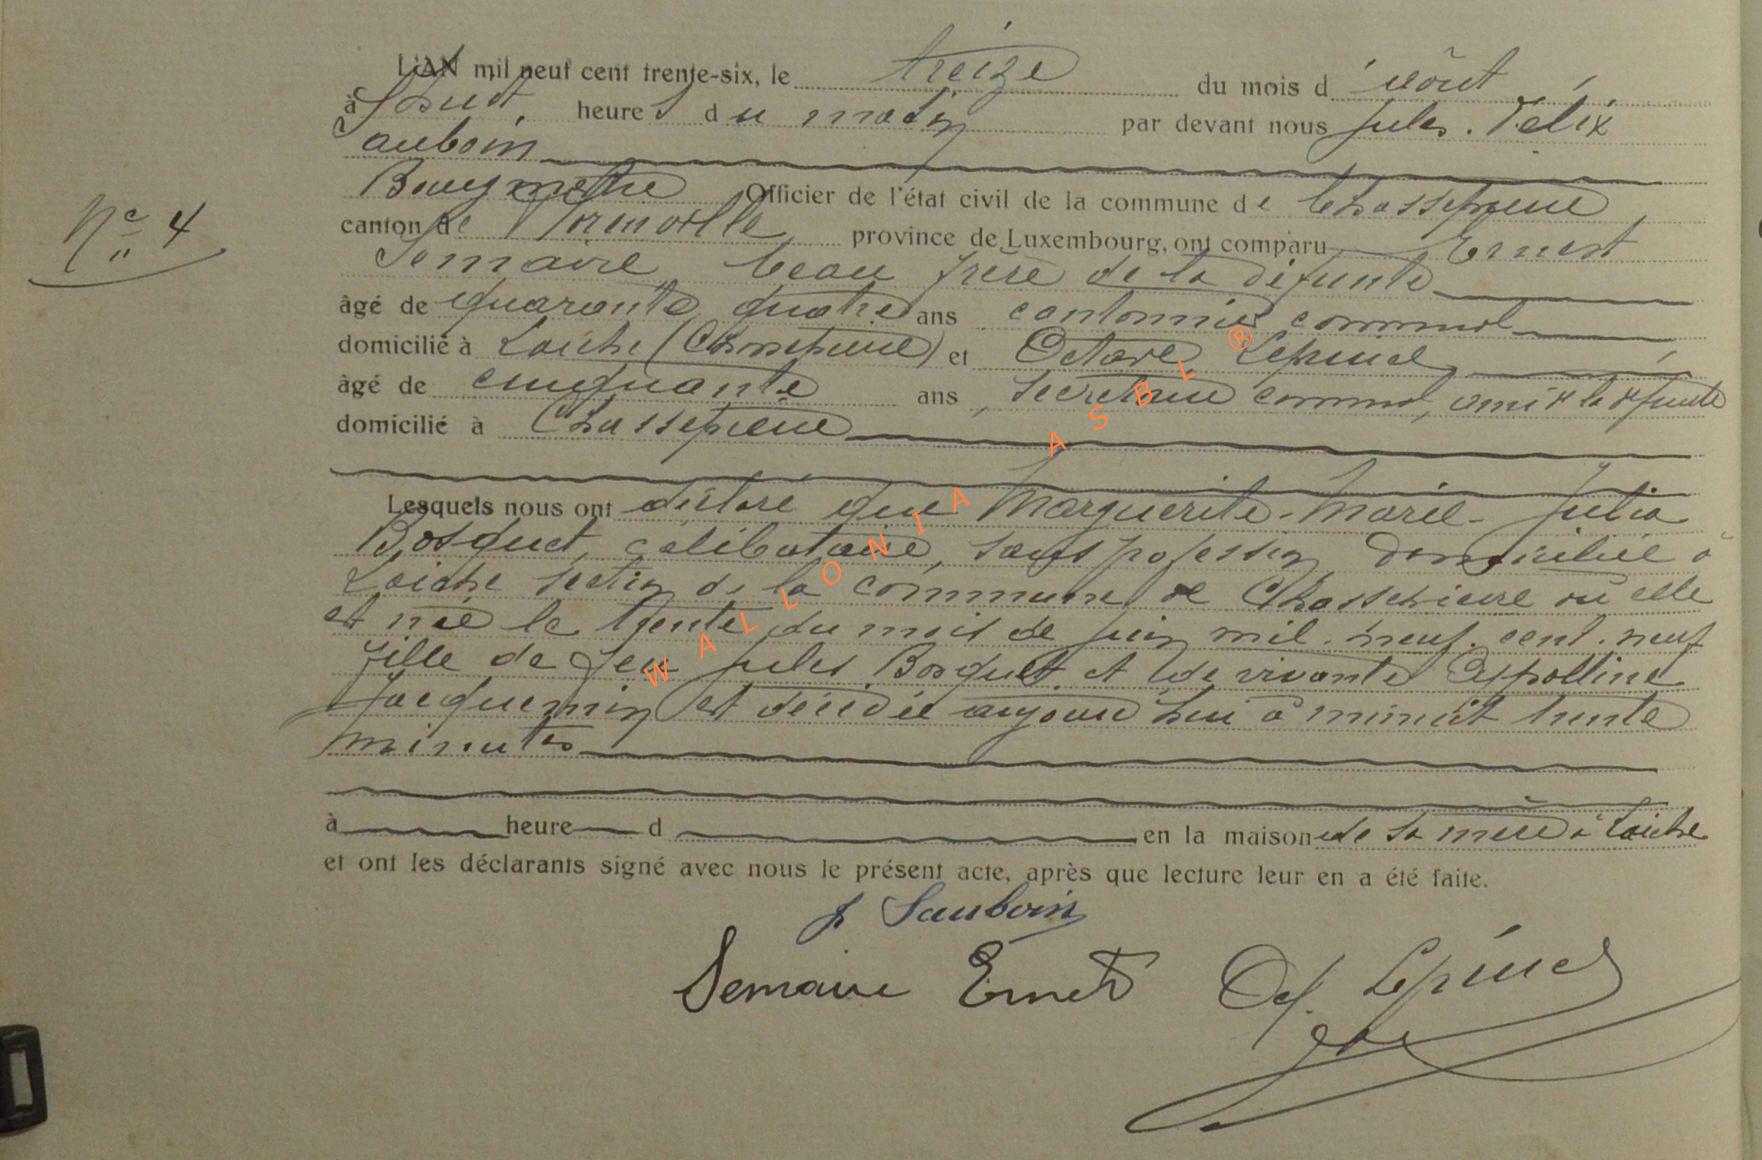 L'AN mil neuf cent trente-six, le treize du mois d'août
à huit heures du matin par devant nous Jules. Félix
Sauboin
Bourgmestre Officier de l'état civil de la commune de Chassepierre
canton de Florenville province de Luxembourg, ont comparu Ernest
Semaire beau frère de la défunte
âgé de quarante quatre ans cantonnier communal
domicilié à Laiche (Chassepierre) et Octave Lepinel
âgé de cinquante ans, secrétaire communal, ami de la défunte
domicilié à Chassepierre
Nº 4
Lesquels nous ont déclaré que Marguerite-Marie-Julia
Bosquet, célibataire, sans profession domiciliée à
Laiche section de la commune de Chassepierre où elle
est née le trente du mois de juin mil. neuf. cent. neuf
fille de feu Jules Bosquet et de vivante Appolline
Jacquemin est décédée aujourd'hui à minuit trente
minutes
à heure d en la maison de sa mère à Laiche
et ont les déclarants signé avec nous le présent acte, après que lecture leur en a été faite.
J Sauboin
Semaire Ernest Oct. Lepinel
WALLONIA ASBL ®